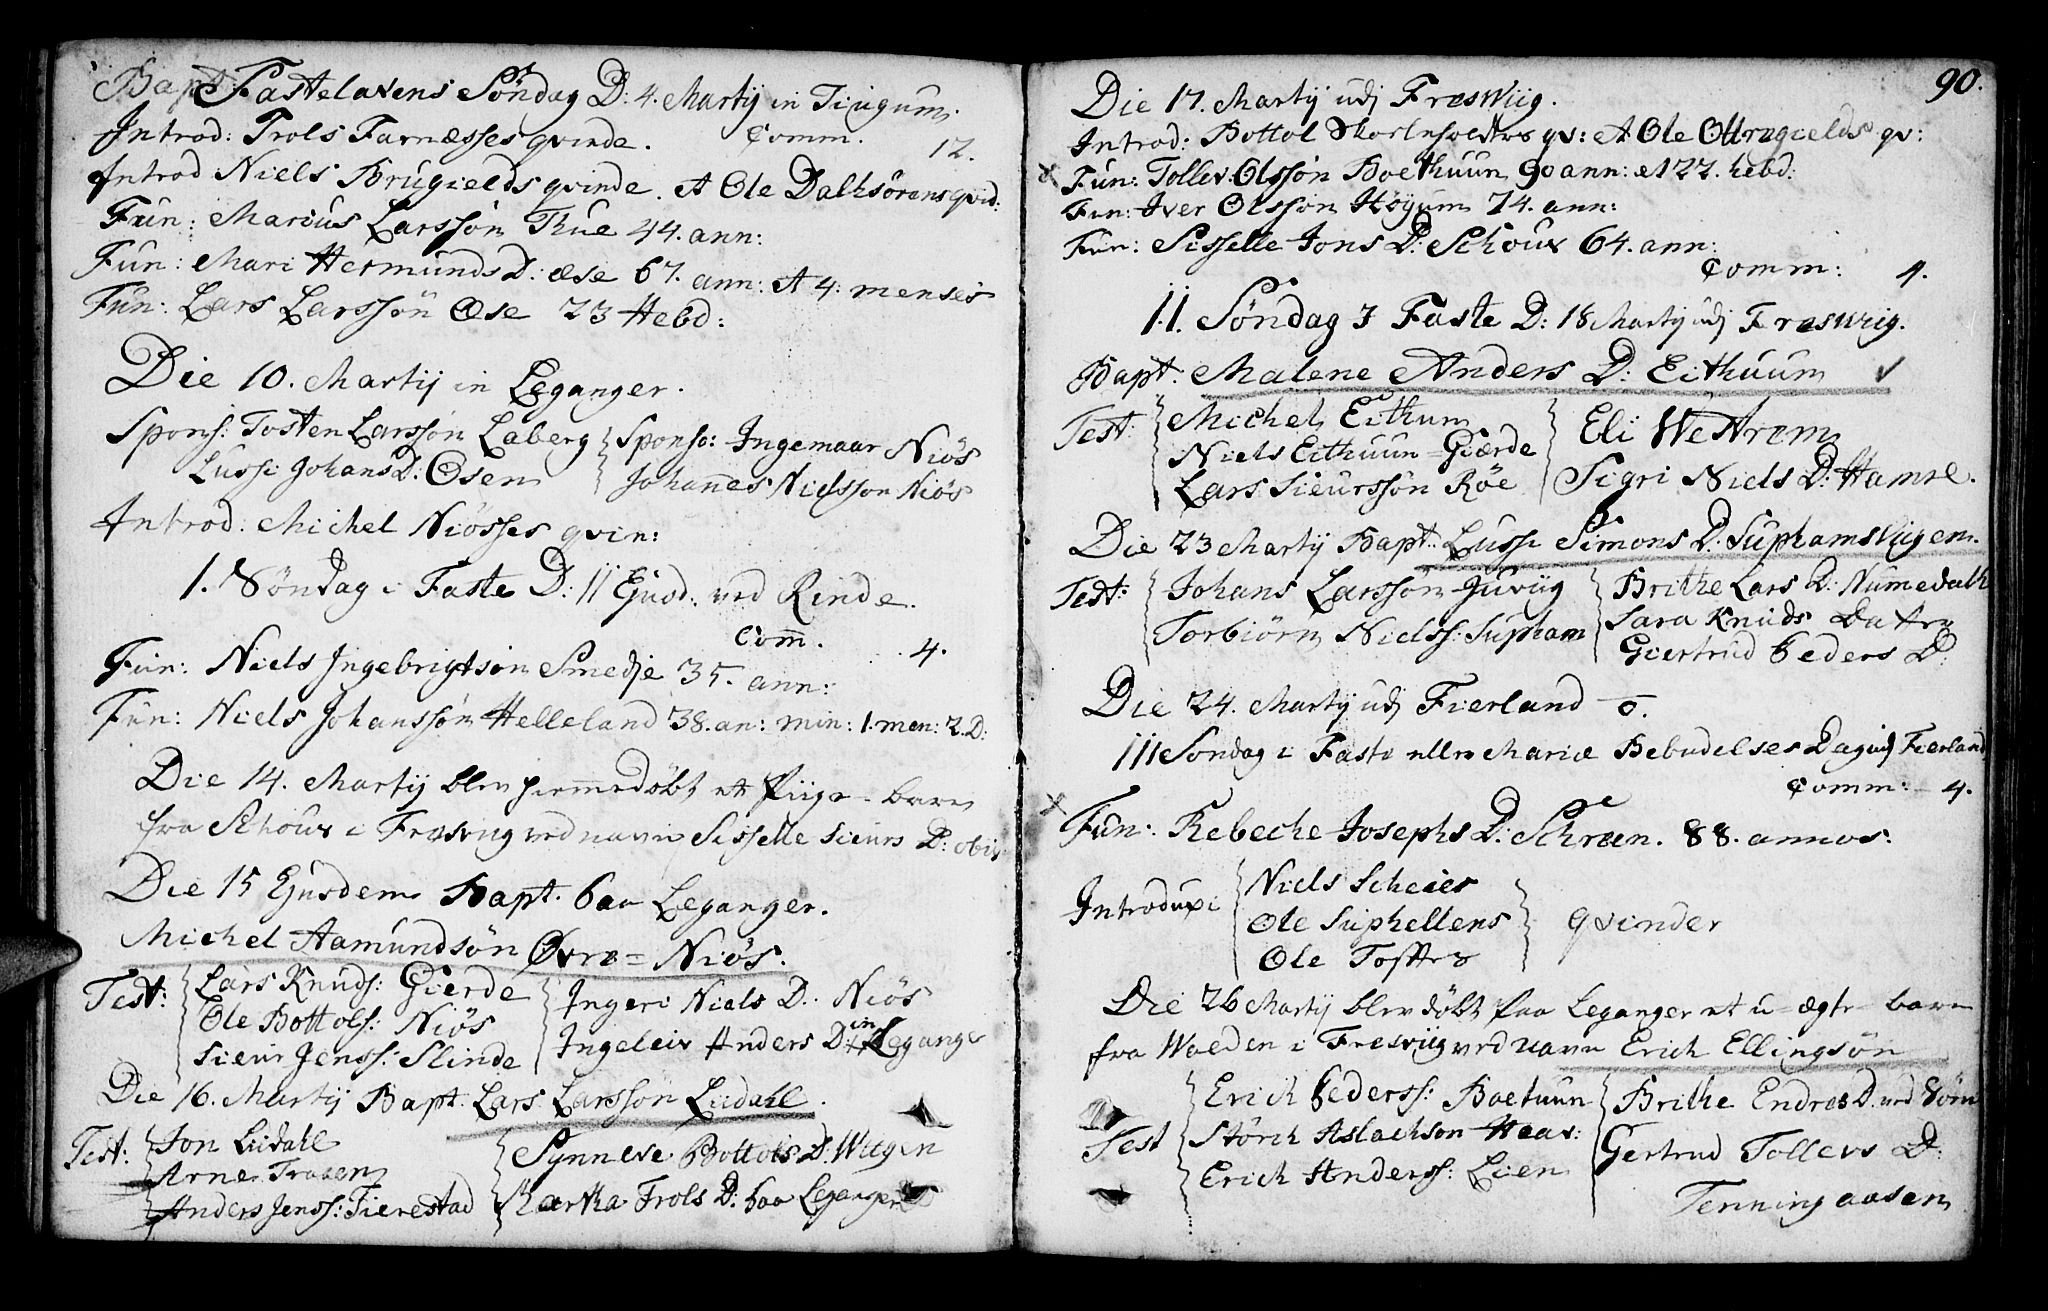 Fastelavens Søndag D: 4. Martij in Tingum.
Introd: Trols Farnæsses qvinde. Comm. 12.
Introd Niels Brugields qvinde. et Ole Dalhsørens qvid:
Fun: Marcus Larssøn Thue 44. ann:
Fun: Mari Hermunds D: Æse 67. ann: et 4: menses
Fun: Lars Larssøn Æse 23 Hebd:
Die 10. Martij in Leganger.
Spons: Tosten Larssøn Laberg
Lussi Johans D: Osen
Sponso: Ingemaar Niøs
Johannes Nielsson Niøs
Introd: Michel Niøsses qvin:
1. Søndag i Faste D: 11 Ejusd: ved Rinde.
Com̄. 4.
Fun: Niels Ingebrigtsøn Smedje 35. ann:
Fun: Niels Johanssøn Helleland 38. an: min: 1. men: 2. D:
Die 14. Martij blev hiemmedøbt et Piige-barn
fra Schouv i Fresvig ved navn Sisselle Sieurs D: obiit
Die 15 Ejusdem Bapt. paa Leganger.
Michel Aamundsøn Øvre=Niøs.
Test: Lars Knuds: Gierde
Ole Bottols: Niøs
Sieur Jenss: Slinde
Ingeri Niels D: Niøs
Ingeleiv Anders D: in Leganger
Die 16. Martij Bapt. Lars Larssøn Liidahl.
Test: Jon Liidahl
Arne Traaen
Anders Jenss: Tierestad
Synneve Bottols D: Wiigen
Martha Trols D: paa Leganger
90.
Die 17. Martij udj Freswiig.
Introd: Bottol qv: et Ole Ottregields qv:
Fun: Tollev Olssøn Boethuun 90 ann: et 22. hebd:
Fun: Iver Olssøn Høyum 74. ann:
Fun: Sisselle Jons D: Schouv 64. ann:
Comm: 4.
11. Søndag J Faste D: 18 Martij udj Freswiig.
Bapt: Malene Anders D: Eithuum
Test: Michel Eithum
Niels Eithuun=Gierde
Lars Sieurssøn Røe
Eli Westrem
Sigri Niels D: Hamre.
Die 23 Martij Bapt: Lussi Simons D: Suphamsviigen.
Test: Johans Larssøn Juviig
Torbiørn Nielss: Supham
Brithe Lars D: Numedahl
Sara Knuds Datter
Giertrud Peders D:
Die 24. Martij udj Fierland - o.
111 Søndag i Faste eller Mariæ Bebudelses Dag udj Fierland
Comm: - 4.
Fun: Rebeche Josephs D: Schreen. 88. annos:
Introduxi Niels Scheies
Ole Suphellens
Ole Toffters
qvinder
Die 26 Martij blev døbt paa Leganger et u=ægte barn
fra Wolden i Fresviig ved navn Erich Ellingsøn
Test Erich Pederss: Boetuun
Størch Aslachson Haav:
Erich Anderss: Lien
Brithe Endres D: ved Søen
Gertrud Tollevs D:
Tenningaasen